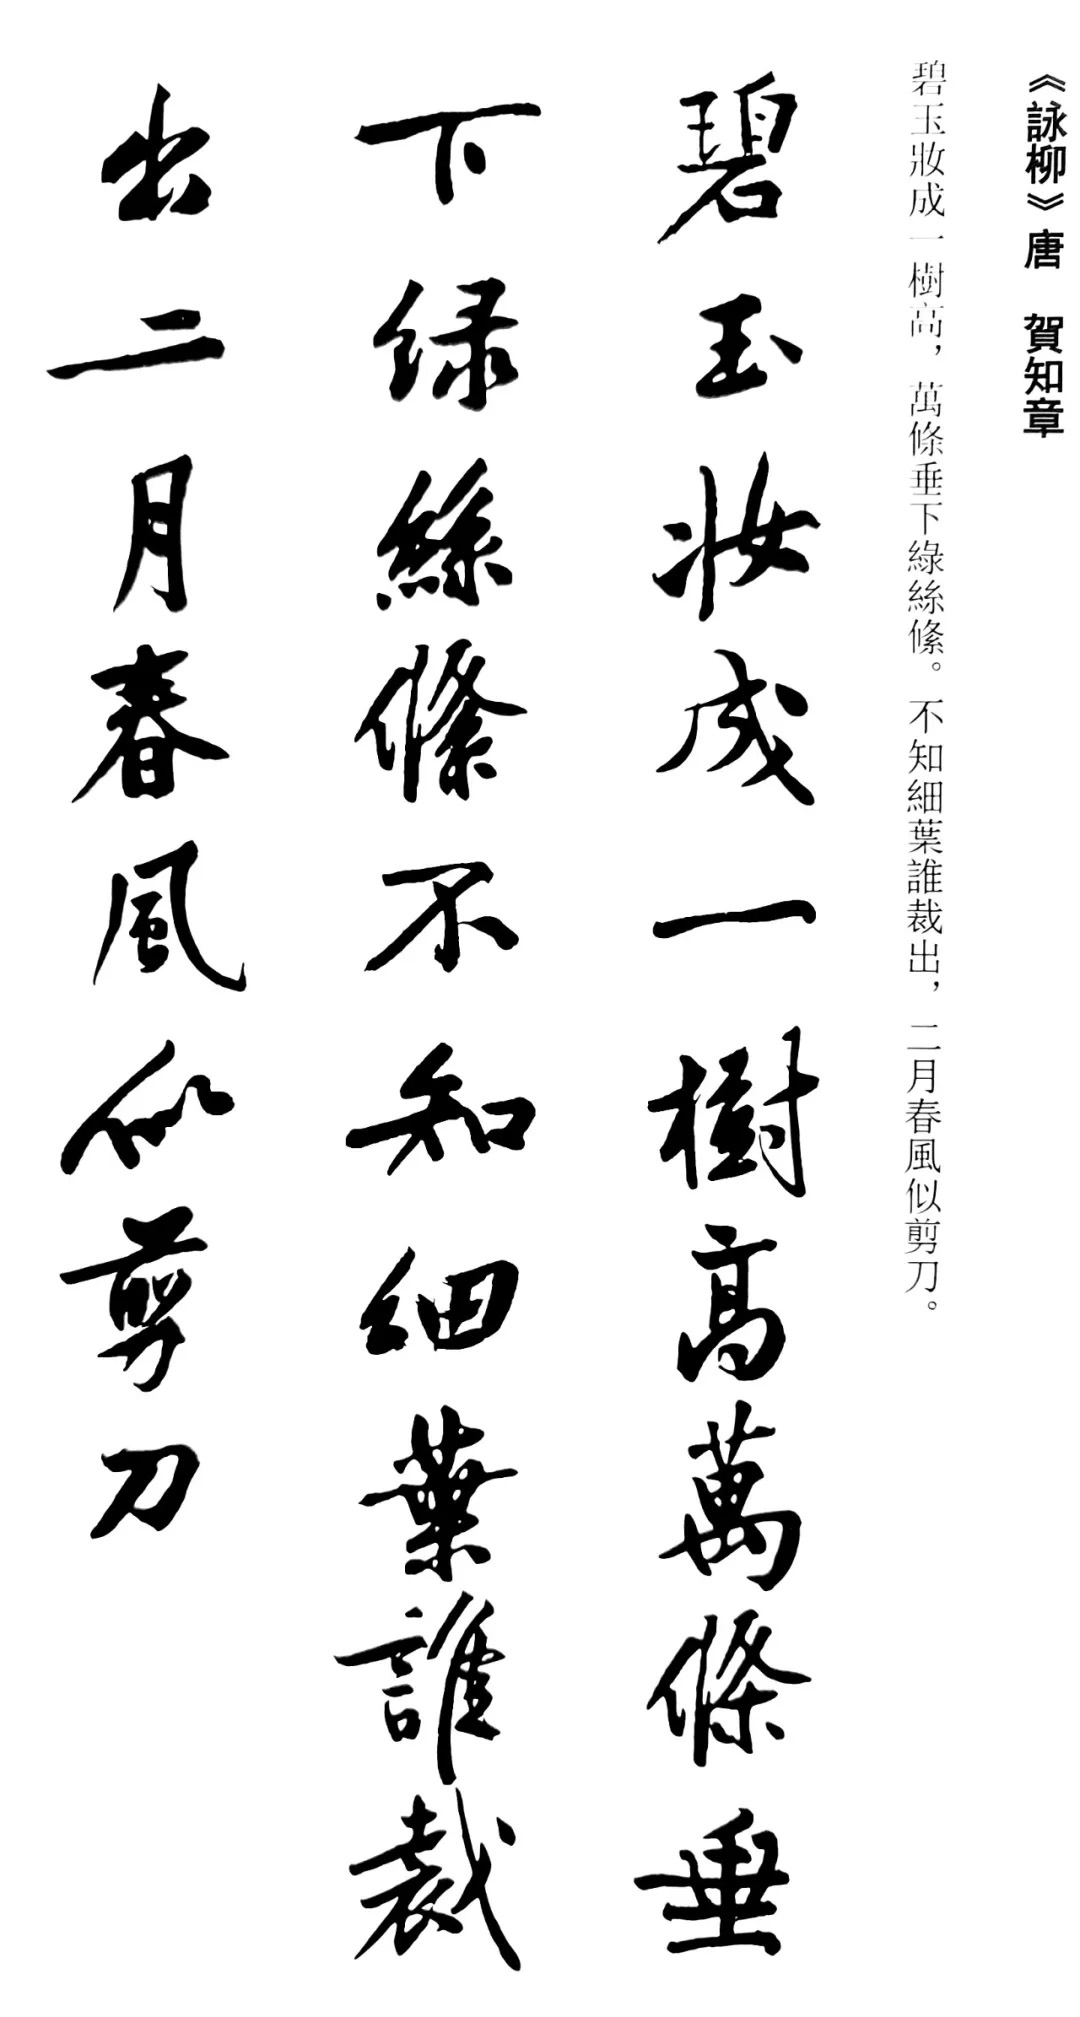 《詠柳》唐　賀知章
碧玉妝成一樹高，萬條垂下綠絲絛。不知細葉誰裁出，二月春風似剪刀。
碧玉妝成一樹高萬條垂
下緑絲絛不知細葉誰裁
出二月春風似剪刀